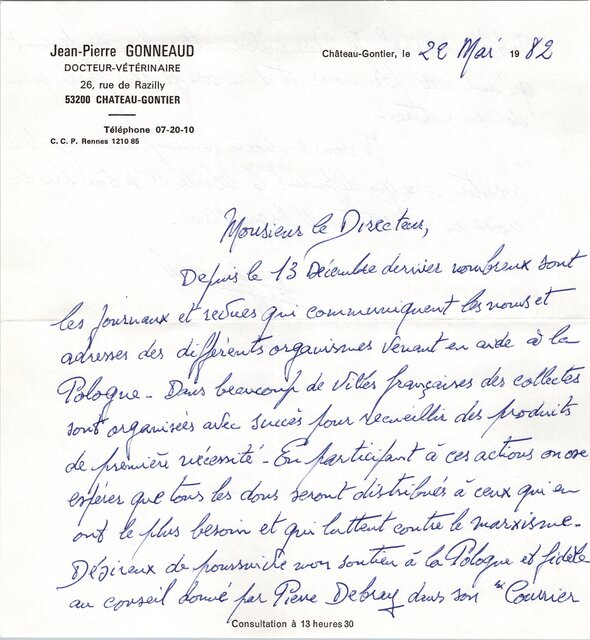 Jean-Pierre GONNEAUD
DOCTEUR-VÉTÉRINAIRE
26, rue de Razilly
53200 CHATEAU-GONTIER
Téléphone 07-20-10
C. C. P. Rennes 1210 85
Château-Gontier, le 22 Mai 1982
Monsieur le Directeur,
Depuis le 13 Décembre dernier nombreux sont
les journaux et revues qui communiquent les noms et
adresses des différents organismes venant en aide à la
Pologne - Dans beaucoup de villes françaises des collectes
sont organisées avec succès pour recueillir des produits
de première nécessité - En participant à ces actions on ose
espérer que tous les dons seront distribués à ceux qui en
ont le plus besoin et qui luttent contre le marxisme -
Désireux de poursuivre mon soutien à la Pologne et fidèle
au conseil donné par Pierre Debray dans son "Courrier
Consultation à 13 heures 30